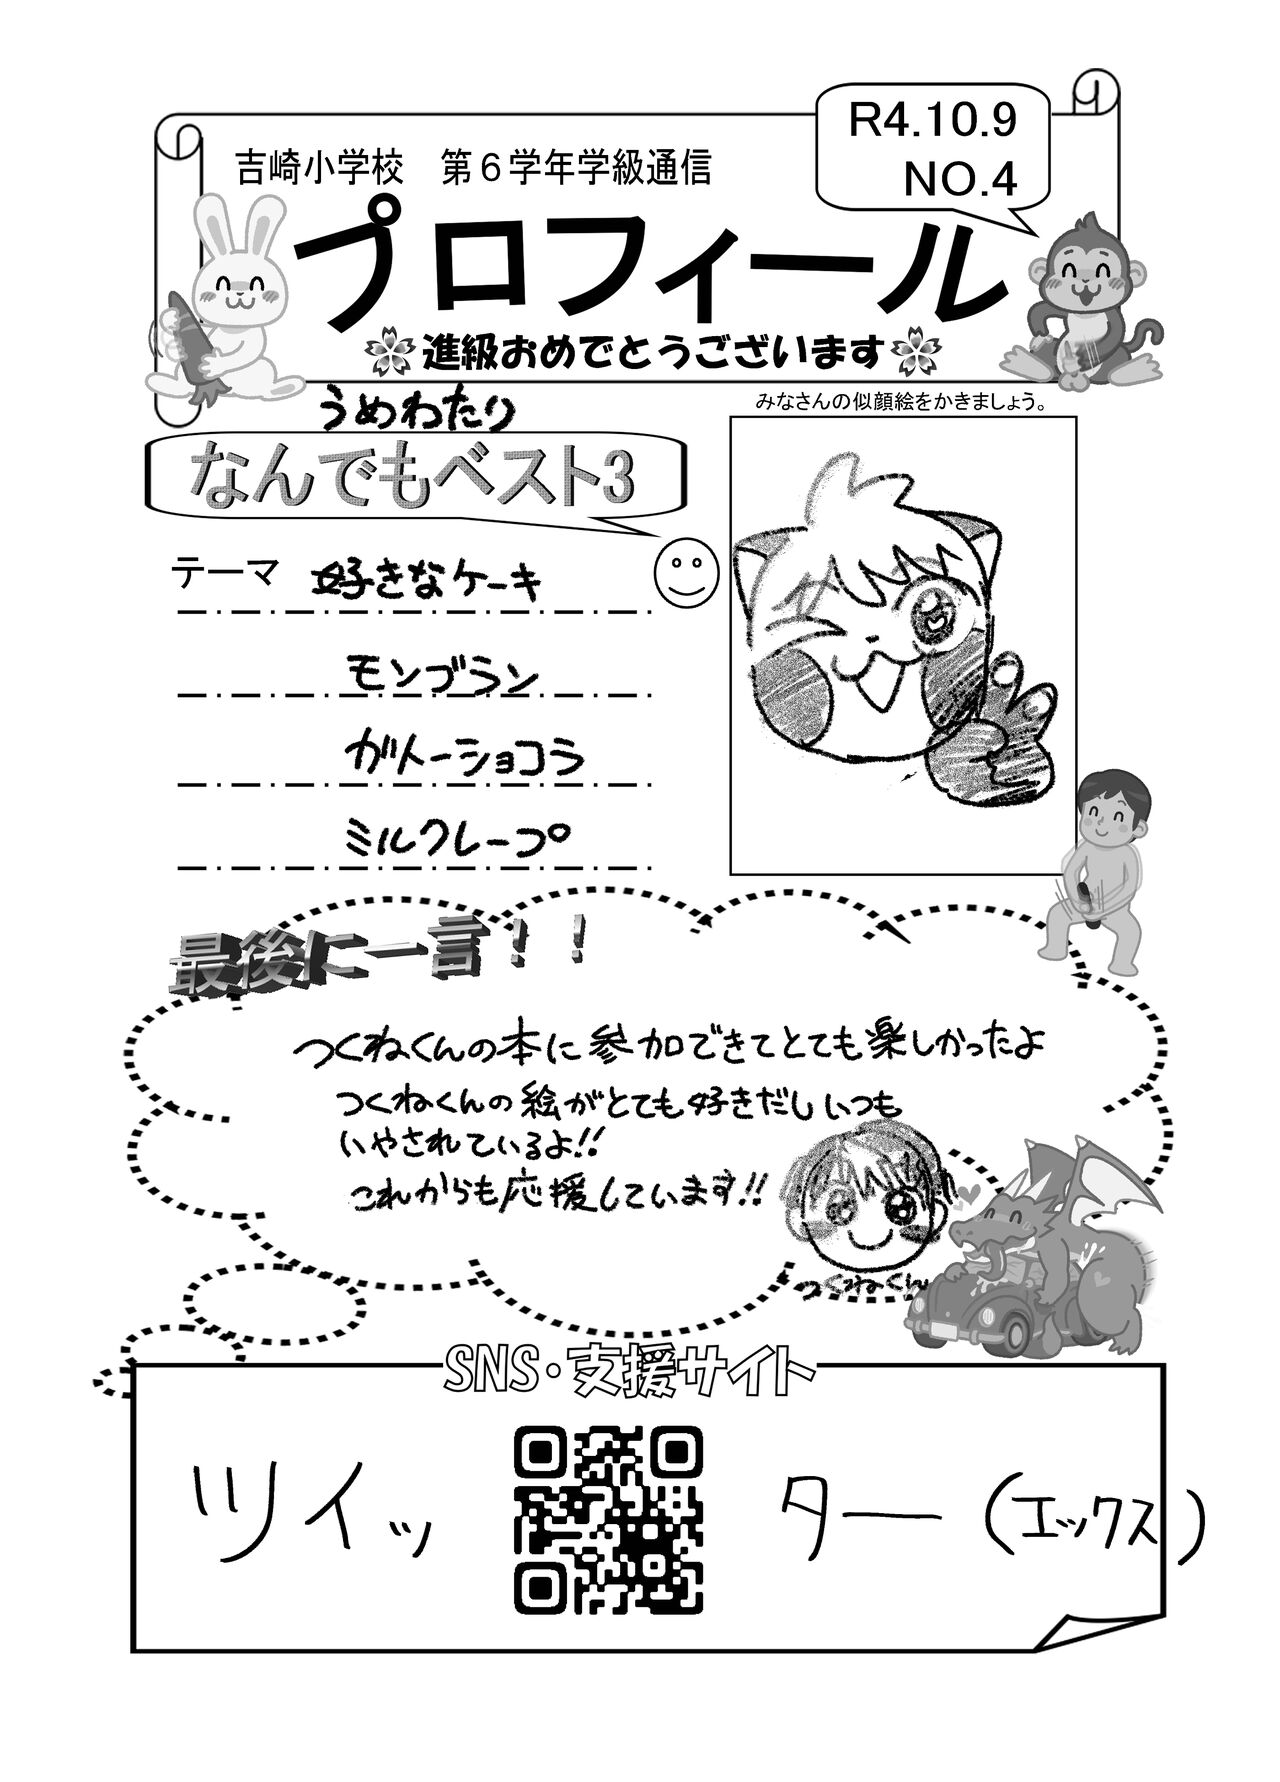 R4.10.9
NO.4
吉崎小学校 第６学年学級通信
プロフィール
進級おめでとうございます
うめわたり
なんでもベスト3
みなさんの似顔絵をかきましょう。
テーマ 好きなケーキ
モンブラン
ガトーショコラ
ミルクレープ
最後に一言！！
つくねくんの本に参加できてとても楽しかったよ
つくねくんの絵がとても好きだしいつも
いやされているよ!!
これからも応援しています!!
つくねくん
SNS・支援サイト
ツイッター（エックス）